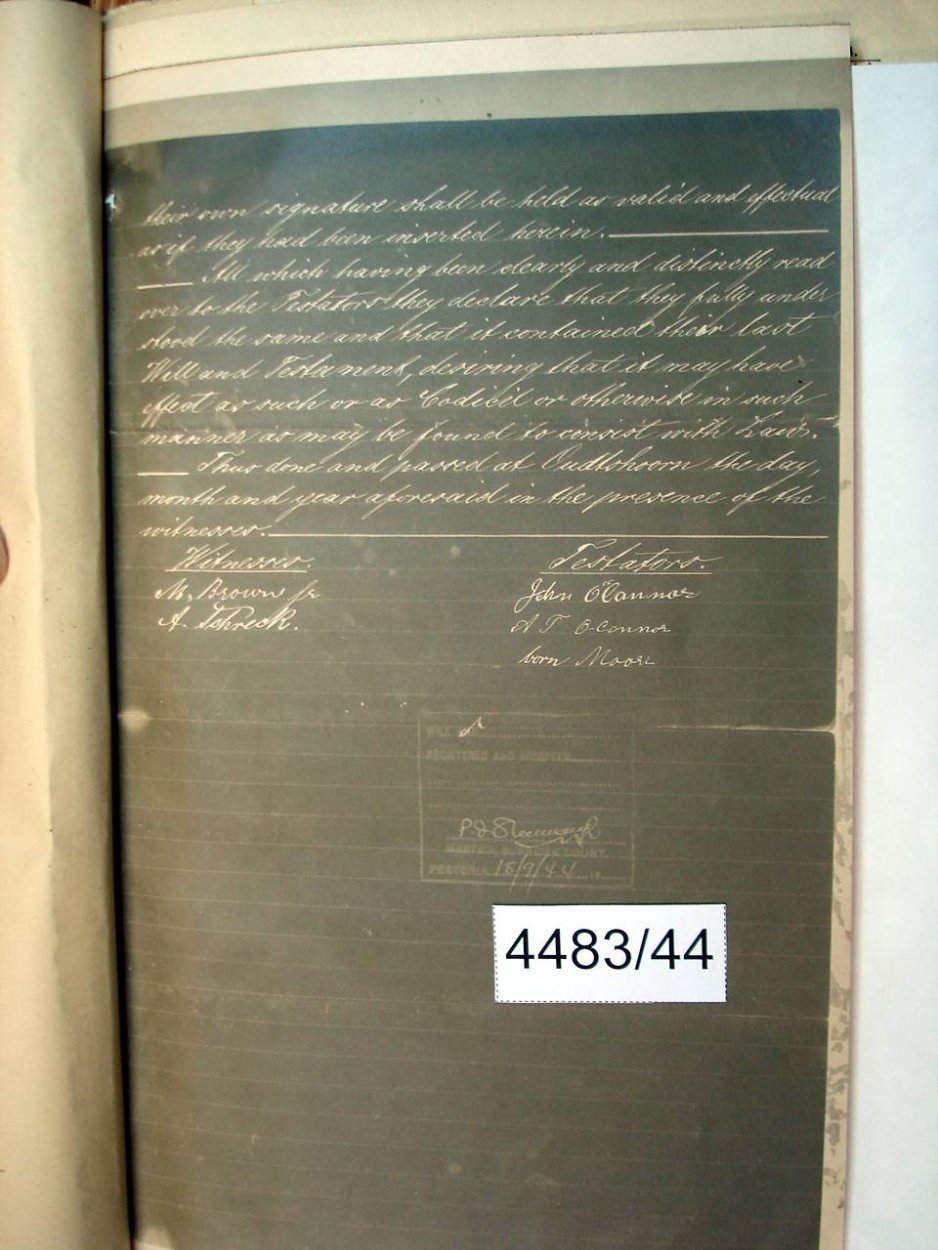 their own signature shall be held as valid and effectual
as if they had been inserted herein.
All which having been clearly and distinctly read
over to the Testators they declare that they fully under
stood the same and that it contained their last
Will and Testament, desiring that it may have
effect as such or as Codicil or otherwise in such
manner as may be found to consist with Law.
Thus done and passed at Oudtshoorn the day,
month and year aforesaid in the presence of the
witnesses.
Witnesses.
M. Brown Jr
A. Schreck.
Testators.
John O'Connor
A T O'Connor
born Moore
WILL
REGISTERED AND ACCEPTED
MASTER SUPREME COURT.
PRETORIA 18/9/44
4483/44